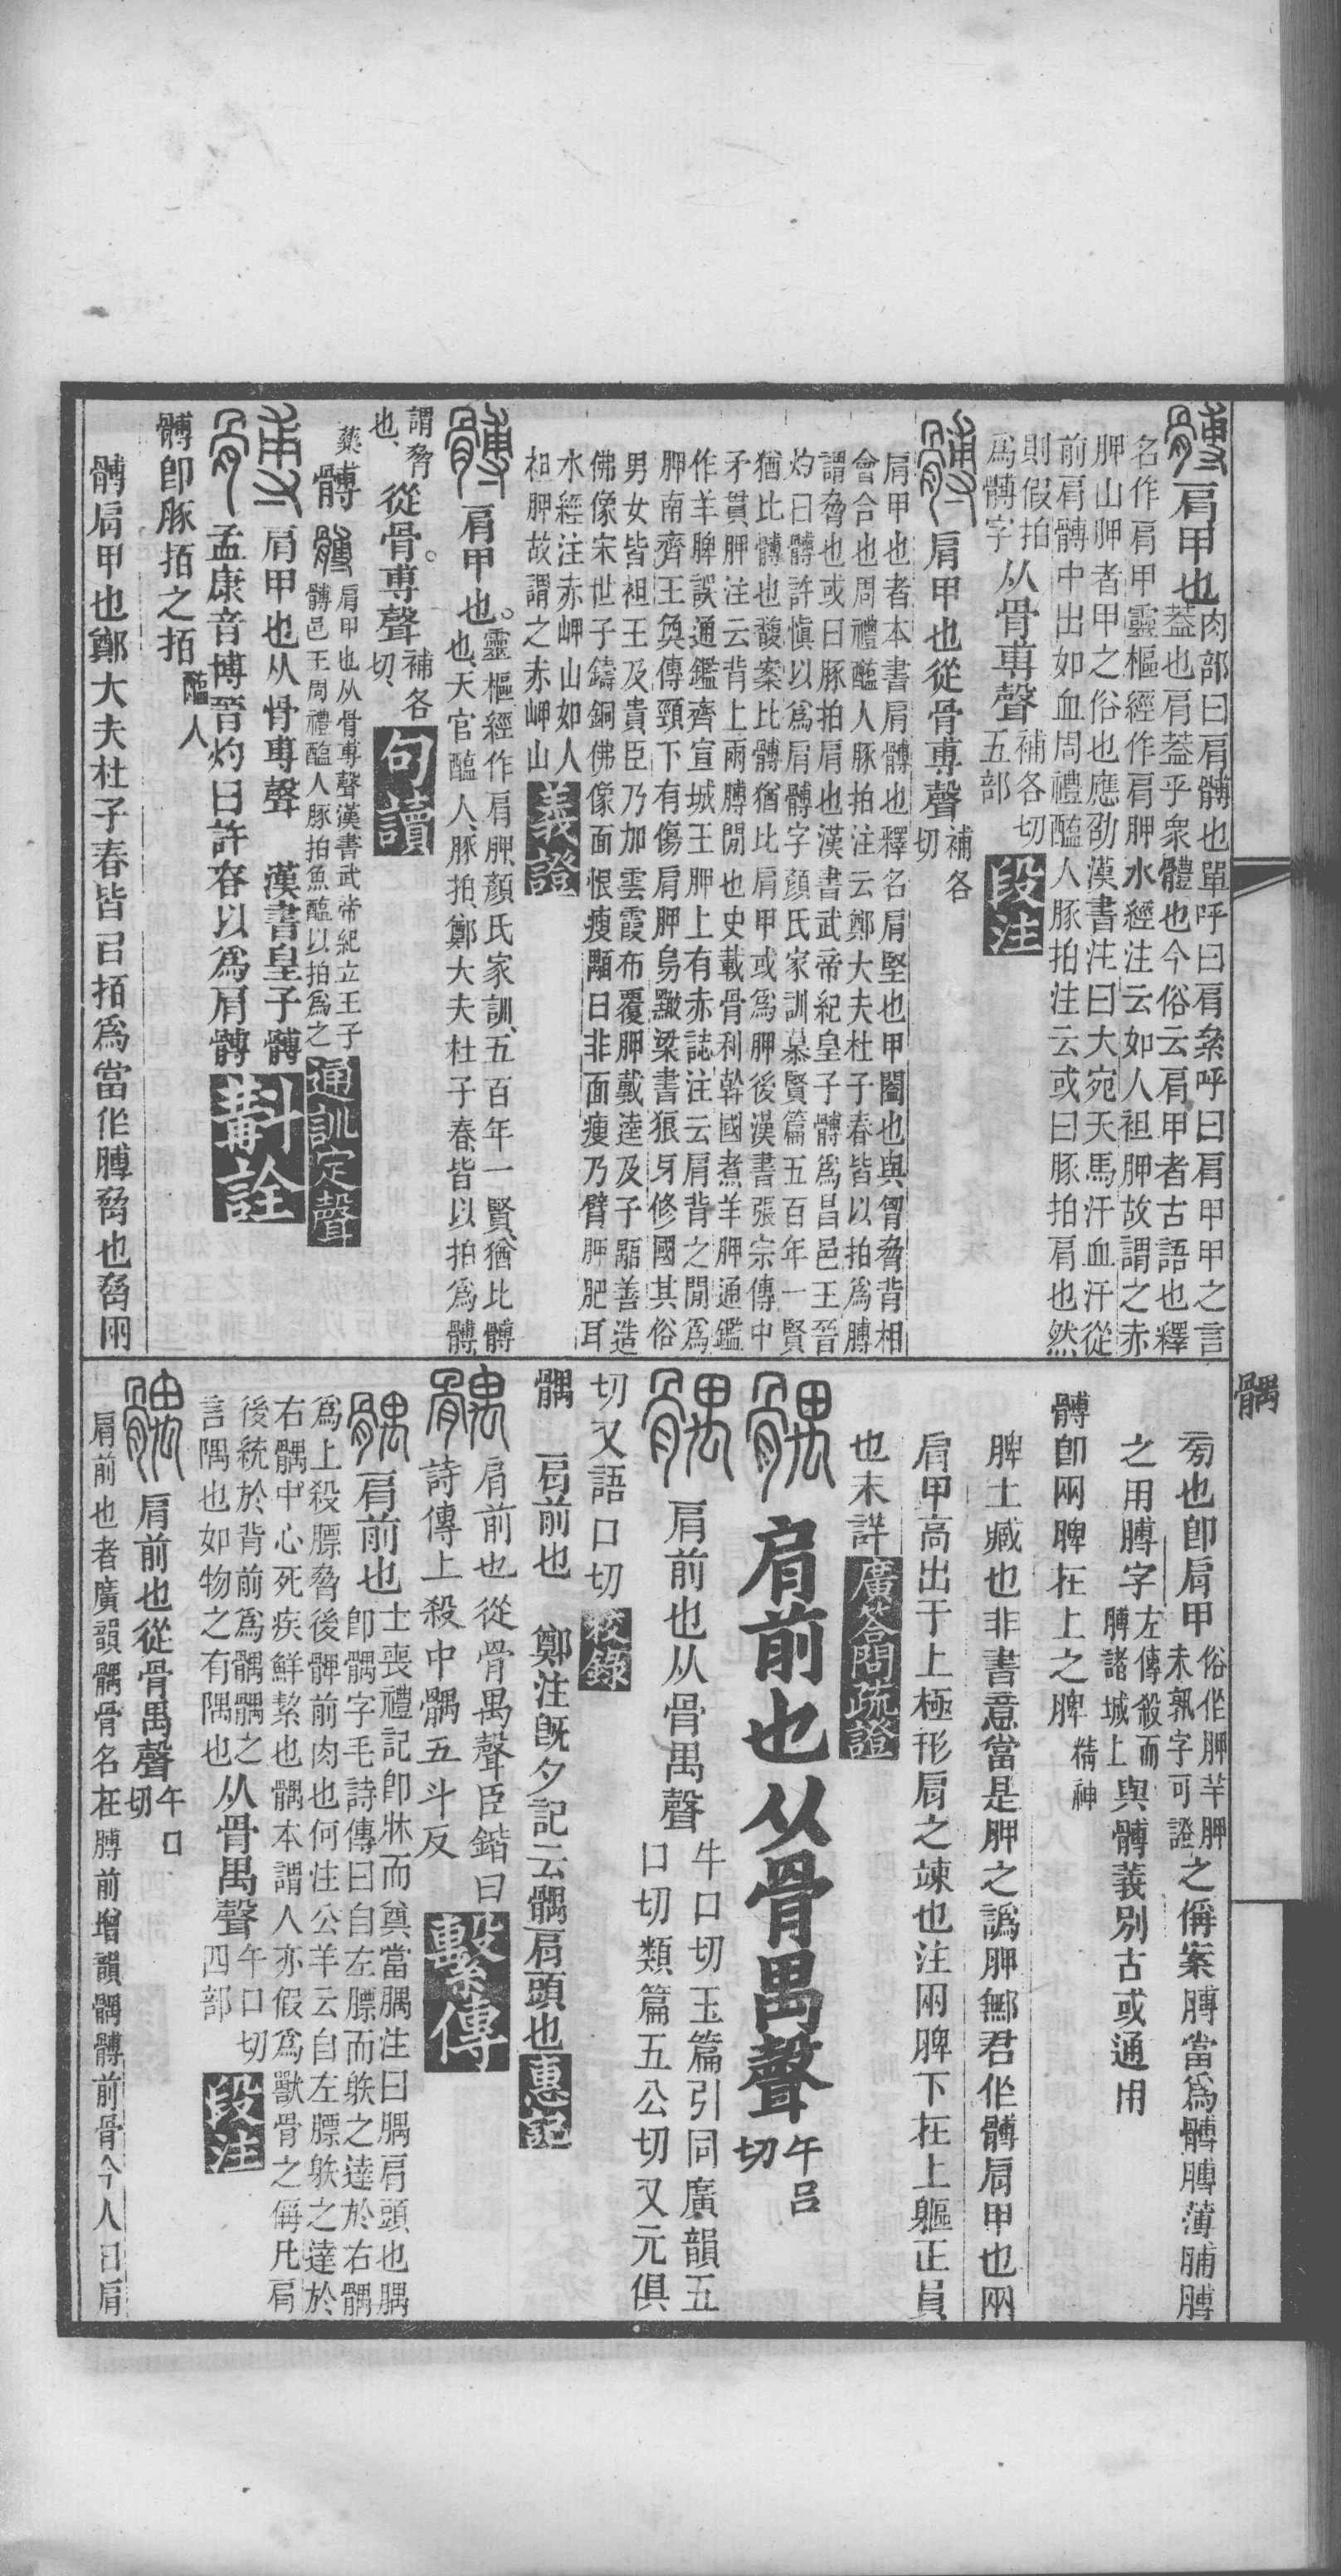 髆肩甲也肉部曰肩髆也單呼曰肩絫呼曰肩甲甲之言
蓋也肩蓋乎衆體也今俗云肩甲者古語也釋
名作肩甲靈樞經作肩胛水經注云如人袒胛故謂之赤
胛山胛者甲之俗也應劭漢書注曰大宛天馬汗血汗從
前肩髆中出如血周禮醢人豚拍注云或曰豚拍肩也然
則假拍
爲髆字
从骨尃聲
補各切
五部
段注
髆肩甲也從骨尃聲
補各
切
肩甲也者本書肩髆也釋名肩堅也甲闔也與胷脅背相
會合也周禮醢人豚拍注云鄭大夫杜子春皆以拍爲膊
謂脅也或曰豚拍肩也漢書武帝紀皇子髆爲昌邑王晉
灼曰髆許愼以爲肩髆字顏氏家訓慕賢篇五百年一賢
猶比髆也馥案比髆猶比肩甲或爲胛後漢書張宗傳中
矛貫胛注云背上兩膊閒也史載骨利幹國煮羊胛通鑑
作羊脾誤通鑑齊宣城王胛上有赤誌注云肩背之閒爲
胛南齊王奐傳頸下有傷肩胛烏黵梁書狼牙修國其俗
男女皆袒王及貴臣乃加雲霞布覆胛戴逵及子顒善造
佛像宋世子鑄銅佛像面恨瘦顒曰非面瘦乃臂胛肥耳
水經注赤岬山如人
袒胛故謂之赤岬山
義證
髆肩甲也。
靈樞經作肩胛顏氏家訓、五百年一賢、猶比髆
也、天官醢人、豚拍、鄭大夫杜子春、皆以拍爲髆
謂脅
也、
從骨。尃聲
補各
切、
句讀
藥髆髆肩甲也从骨尃聲漢書武帝紀立王子
髆邑王周禮醢人豚拍魚醢以拍爲之
通訓定聲
髆肩甲也从骨尃聲　漢書皇子髆
孟康音博晉灼曰許㕻以爲肩髆
斠詮
髆卽豚拍之拍
醢人
髆肩甲也鄭大夫杜子春皆㠯拍爲當作膊脅也脅兩
髃
旁也卽肩甲
俗作胛羊胛
未孰字可證
之偁案膊當爲髆膊薄脯膊
之用膊字
左傳殺而
膊諸城上
與髆義別古或通用
髆卽兩脾在上之脾
精神
脾土臧也非書意當是胛之譌胛鄦君作髆肩甲也兩
肩甲高出于上極形肩之竦也注兩脾下在上軀正員
也未詳
廣答問疏證
髃肩前也从骨禺聲
午口
切
髃肩前也从骨禺聲
牛口切玉篇引同廣韻五
口切類篇五公切又元俱
切又語口切
校錄
髃　肩前也　鄭注旣夕記云髃肩頭也
惠記
髃肩前也從骨禺聲臣鍇曰
詩傳上殺中髃五斗反
繫傳
髃肩前也
士喪禮記卽牀而奠當腢注曰腢肩頭也腢
卽髃字毛詩傳曰自左膘而䠶之達於右髃
爲上殺膘脅後髀前肉也何注公羊云自左膘䠶之達於
右髃中心死疾鮮絜也髃本謂人亦假爲獸骨之偁凡肩
後統於背前爲髃髃之
言隅也如物之有隅也
从骨禺聲
午口切
四部
段注
髃肩前也從骨禺聲
午口
切
肩前也者廣韻髃骨名在膊前增韻髃髆前骨今人曰肩